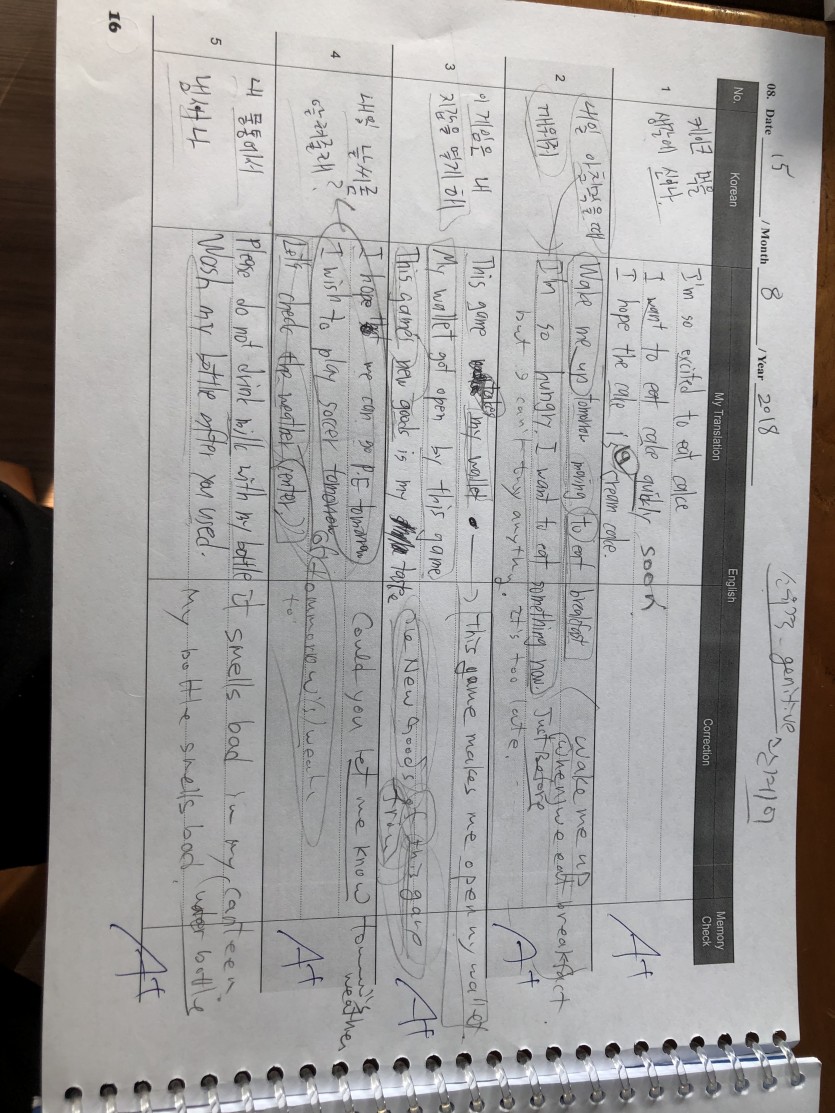 08. Date 15 / Month 8 / Year 2018
genitive
No. Korean My Translation English Correction Memory Check
1
케이크 먹을
생각에 신나
I'm so excited to eat cake
I want to eat cake quickly soon
I hope the cake is cream cake.
A+
2
내일 아침먹을때
깨워줘
Wake me up tomorrow moring to eat breakfast
I'm so hungry. I want to eat something now.
but I can't buy anything. It's too late.
Wake me up
when we eat breakfast.
Just Before
A+
3
이 게임은 내
지갑을 열게 해
This game takes my wallet
My wallet got open by this game
This game new goods is my taste
This game makes me open my wallet.
New Goods of this game
from
A+
4
내일 날씨좀
알려줄래?
I hope we can go P.E tomorrow
I wish to play soccer tomorrow
Let's check the weather center
Could you let me know tommorow's weather
to
A+
5
내 물통에서
냄새나
Please do not drink milk with my bottle
Wash my bottle after you used.
it smells bad in my canteen
water bottle
My bottle smells bad.
A+
16